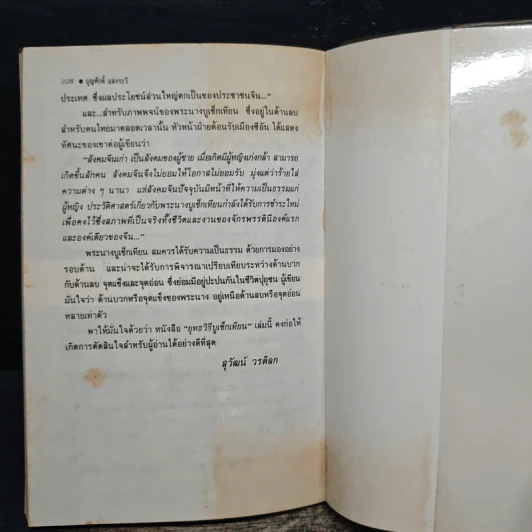 ๒๐๒ ● บุญศักดิ์ แสงระวี
ประเทศ ซึ่งผลประโยชน์ส่วนใหญ่ตกเป็นของประชาชนจีน..."
และ...สำหรับภาพพจน์ของพระนางบูเช็กเทียน ซึ่งอยู่ในด้านลบ
สำหรับคนไทยมาตลอดเวลานั้น หัวหน้าฝ่ายต้อนรับเมืองซีอัน ได้แสดง
ทัศนะของเขาต่อผู้เขียนว่า
"สังคมจีนเก่า เป็นสังคมของผู้ชาย เมื่อเกิดมีผู้หญิงเก่งกล้า สามารถ
เกิดขึ้นสักคน สังคมจีนจึงไม่ยอมให้โอกาสไม่ยอมรับ มุ่งแต่ว่าร้ายใส่
ความต่าง ๆ นานา แต่สังคมจีนปัจจุบันมีหน้าที่ให้ความเป็นธรรมแก่
ผู้หญิง ประวัติศาสตร์เกี่ยวกับพระนางบูเช็กเทียนกำลังได้รับการชำระใหม่
เพื่อคงไว้ซึ่งสภาพที่เป็นจริงทั้งชีวิตและงานของจักรพรรดินีองค์แรก
และองค์เดียวของจีน..."
พระนางบูเช็กเทียน สมควรได้รับความเป็นธรรม ด้วยการมองอย่าง
รอบด้าน และน่าจะได้รับการพิจารณาเปรียบเทียบระหว่างด้านบวก
กับด้านลบ จุดแข็งและจุดอ่อน ซึ่งย่อมมีอยู่ปะปนกันในชีวิตปุถุชน ผู้เขียน
มั่นใจว่า ด้านบวกหรือจุดแข็งของพระนาง อยู่เหนือด้านลบหรือจุดอ่อน
หลายเท่าตัว
พาให้มั่นใจด้วยว่า หนังสือ "ยุทธวิธีบูเช็กเทียน" เล่มนี้ คงก่อให้
เกิดการตัดสินใจสำหรับผู้อ่านได้อย่างดีที่สุด
สุวัฒน์ วรดิลก